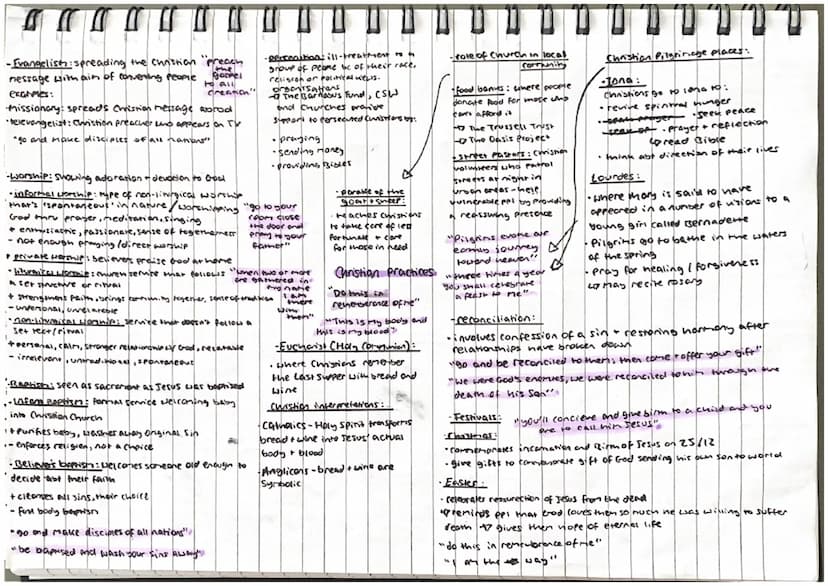 - Evangelism: spreading the Christian
message with aim of converting people
"preach
the
gospel
to all
creation"
examples:
missionary: spreads Christian message abroad
televangelist: Christian preacher who appears on TV
"go and make disciples of all nations"
- Worship: showing adoration + devotion to God
- informal worship: type of non-liturgical worship
that's 'spontaneous' in nature / worshipping
God thru prayer, meditation, singing
+ enthusiastic, passionate, sense of togetherness
- not enough praying / direct worship
+ private worship: believers praise God at home
- liturgical worship: church service that follows
a set structure or ritual
+ strengthens faith, brings community together, sense of tradition
- impersonal, unrelatable
- non-liturgical worship: service that doesn't follow a
set text / ritual
+ personal, calm, stronger relationship w/ God, relatable
- irrelevant, untraditional, spontaneous
- Baptism: seen as sacrament as Jesus was baptised
- Infant Baptism: formal service welcoming baby
into Christian Church
+ purifies baby, washes away original sin
- enforces religion, not a choice
- Believer's baptism: welcomes someone old enough to
decide abt their faith
+ cleanses all sins, their choice
- full body baptism
"go and make disciples of all nations"
"be baptised and wash your sins away"
"go to your
room close
the door and
pray to your
father"
"when two or more
are gathered in
my name
I am
there
with
them"
- persecution: ill-treatment to a
group of people bc of their race,
religion or political views.
organisations
The Barnabus Fund, CSW
and Churches provide
support to persecuted Christians by:
• praying
• sending money
• providing Bibles
• parable of the
goat + sheep:
• teaches Christians
to take care of less
fortunate + care
for those in need
Christian Practices
"Do this in
rememberance of me"
"This is my body and
this is my blood"
- Eucharist (Holy Communion):
• where Christians remember
the Last Supper with bread and
wine
Christian interpretations:
- Catholics - Holy Spirit transports
bread + wine into Jesus' actual
body + blood
- Anglicans - bread + wine are
symbolic
- role of Church in local
community
- food banks: where people
donate food for those who
can't afford it
The Trussell Trust
The Oasis Project
- Street Pastors: Christian
volunteers who patrol
streets at night in
urban areas - help
vulnerable ppl by providing
a reassuring presence
"Pilgrims evoke our
earthly journey
toward heaven"
"three times a year
you shall celebrate
a feast to me"
Christian Pilgrimage places:
- Iona:
Christians go to Iona to:
• revive spiritual hunger
• seek peace
• prayer + reflection
read Bible
• think abt direction of their lives
Lourdes:
• where Mary is said to have
appeared in a number of visions to a
young girl called Bernadette
• Pilgrims go to bathe in the waters
of the spring
• pray for healing / forgiveness
may recite rosary
- reconciliation:
• involves confession of a sin + restoring harmony after
relationships have broken down
"go and be reconciled to them; then come + offer your gift"
"we were God's enemies, we were reconciled to him through the
death of his Son"
- Festivals:
"you'll concieve and give birth to a child and you
are to call him Jesus"
Christmas:
• commemorates incarnation and Birth of Jesus on 25/12
• give gifts to commemorate gift of God sending his own son to world
- Easter:
• celebrates resurrection of Jesus from the dead
reminds ppl that God loves them so much he was willing to suffer
death gives them hope of eternal life
"do this in rememberance of me"
"I am the way"